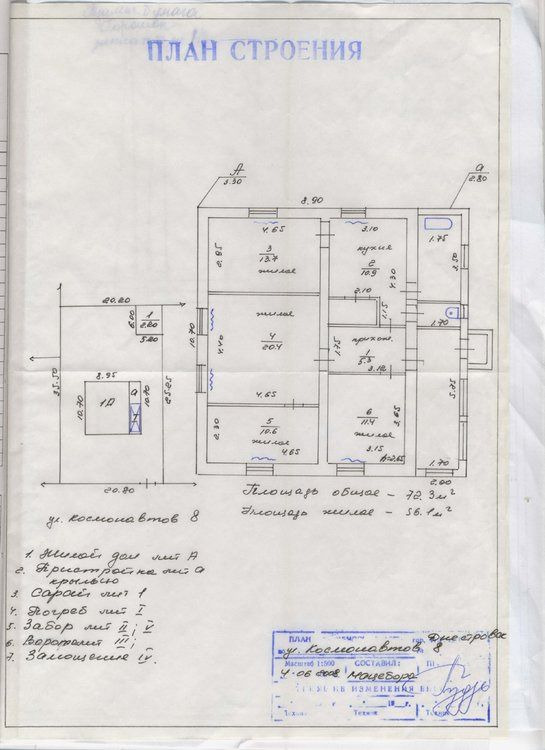 ПЛАН СТРОЕНИЯ
А
3.30
а
2.80
8.90
4.65
3.10
1.75
2.95
3
13.7
жилое
кухня
2
10.9
4.30
3.50
2.10
1.15
1.70
10.70
жилое
4
20.4
4.40
4.65
прихож.
1
5.3
1.75
3.12
5.75
2.30
5
10.6
жилое
4.65
6
11.4
жилое
3.65
3.15
h=2.65
1.70
2.00
20.20
6.00
1
2.20
5.20
35.50
8.95
10.70
1А
а
10.70
I
25.25
20.80
Площадь общая - 72.3 м²
Площадь жилое - 56.1 м²
ул. Космонавтов 8
1. Жилой дом лит А
2. Пристройка лит а
крыльцо
3. Сарай лит 1
4. Погреб лит I
5. Забор лит II; V
6. Ворота лит III;
7. Замощение IV.
ПЛАН
гор. Днестровск
ул. Космонавтов 8
Масштаб 1:500 СОСТАВИЛ:
4.06 2008 Мацебора
ИЗМЕНЕНИЯ
Техник Техник